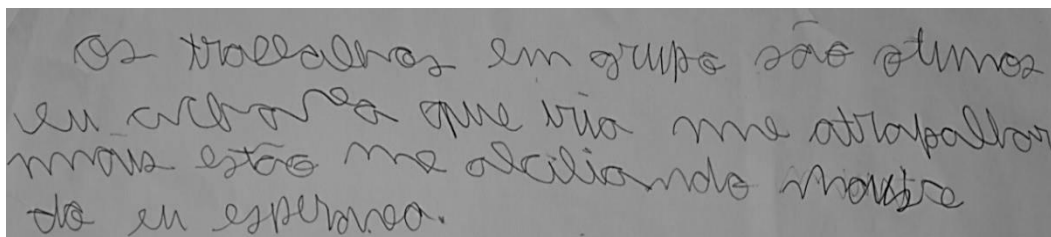 Os trabalhos em grupo são otimos
eu achava que iria me atrapalhar
mais estão me alciliando mais
do eu esperava.